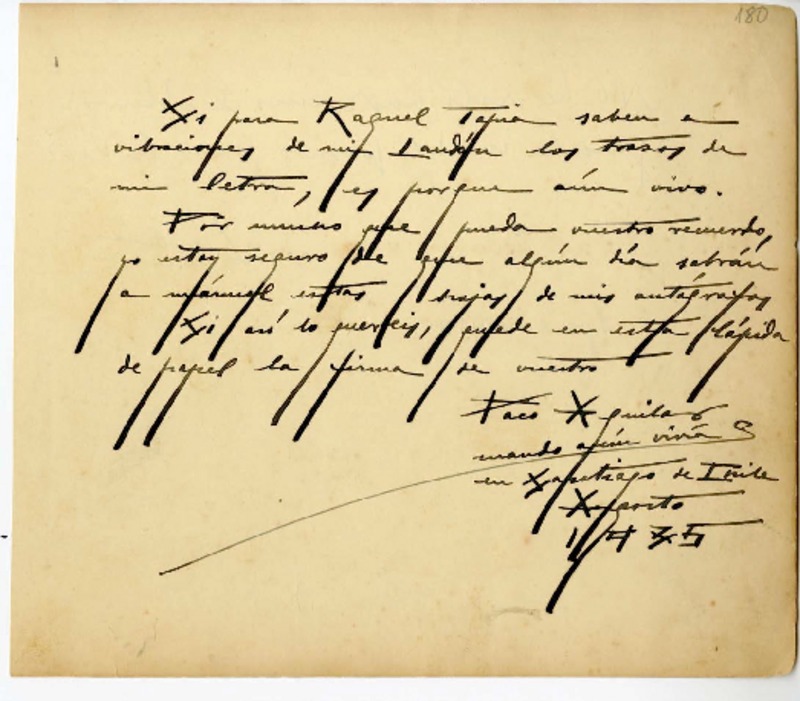 180
Si para Raquel Tapia saben a
vibraciones de mi Laudón los trazos de
mi letra, es porque aún vivo.
Por mucho que pueda vuestro recuerdo,
yo estoy seguro de que algún día sabrán
a mármol estas hojas de mis autógrafos
Si así lo quereis, quede en esta lápida
de papel la firma de vuestro
Paco Aguilar
cuando aún vivía
en Santiago de Chile
Agosto
1935